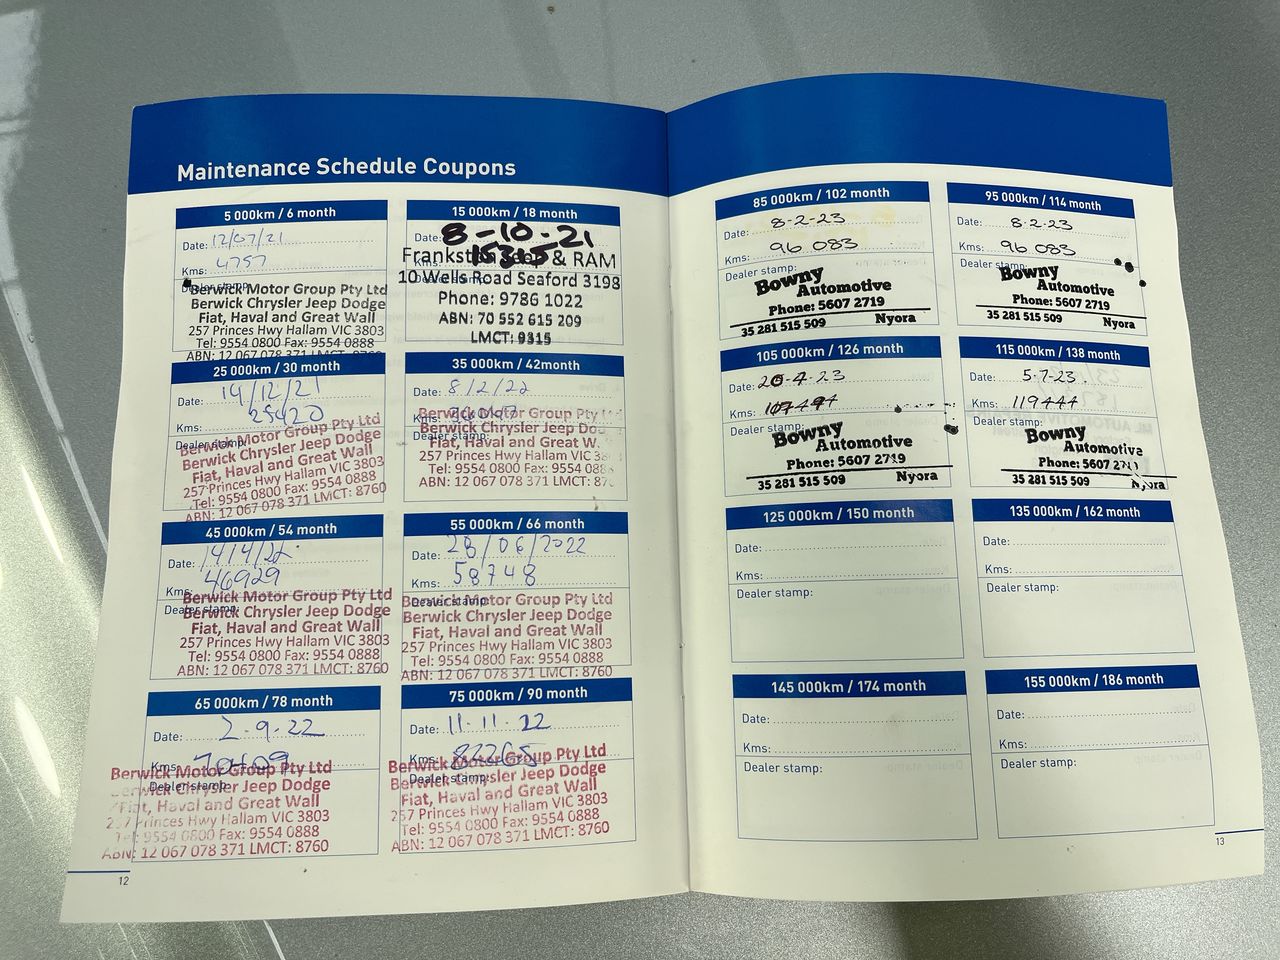 Maintenance Schedule Coupons
5 000km / 6 month
Date: 12/07/21
Kms: 4757
Dealer stamp:
Berwick Motor Group Pty Ltd
Berwick Chrysler Jeep Dodge
Fiat, Haval and Great Wall
257 Princes Hwy Hallam VIC 3803
Tel: 9554 0800 Fax: 9554 0888
ABN: 12 067 078 371 LMCT: 8760
15 000km / 18 month
Date: 8-10-21
15315
Frankston Jeep & RAM
10 Wells Road Seaford 3198
Phone: 9786 1022
ABN: 70 552 615 209
LMCT: 9315
25 000km / 30 month
Date: 14/12/21
Kms: 25420
Dealer stamp:
Berwick Motor Group Pty Ltd
Berwick Chrysler Jeep Dodge
Fiat, Haval and Great Wall
257 Princes Hwy Hallam VIC 3803
Tel: 9554 0800 Fax: 9554 0888
ABN: 12 067 078 371 LMCT: 8760
35 000km / 42month
Date: 8/2/22
Kms:
Dealer stamp:
Berwick Motor Group Pty
Berwick Chrysler Jeep Dod
Fiat, Haval and Great W
257 Princes Hwy Hallam VIC 38
Tel: 9554 0800 Fax: 9554 088
ABN: 12 067 078 371 LMCT: 87
45 000km / 54 month
Date: 14/4/22
Kms: 46929
Dealer stamp:
Berwick Motor Group Pty Ltd
Berwick Chrysler Jeep Dodge
Fiat, Haval and Great Wall
257 Princes Hwy Hallam VIC 3803
Tel: 9554 0800 Fax: 9554 0888
ABN: 12 067 078 371 LMCT: 8760
55 000km / 66 month
Date: 28/06/2022
Kms: 58748
Dealer stamp:
Berwick Motor Group Pty Ltd
Berwick Chrysler Jeep Dodge
Fiat, Haval and Great Wall
257 Princes Hwy Hallam VIC 3803
Tel: 9554 0800 Fax: 9554 0888
ABN: 12 067 078 371 LMCT: 8760
65 000km / 78 month
Date: 2-9-22
Kms: 70409
Dealer stamp:
Berwick Motor Group Pty Ltd
Berwick Chrysler Jeep Dodge
Fiat, Haval and Great Wall
257 Princes Hwy Hallam VIC 3803
Tel: 9554 0800 Fax: 9554 0888
ABN: 12 067 078 371 LMCT: 8760
75 000km / 90 month
Date: 11-11-22
Kms: 82265
Dealer stamp:
Berwick Motor Group Pty Ltd
Berwick Chrysler Jeep Dodge
Fiat, Haval and Great Wall
257 Princes Hwy Hallam VIC 3803
Tel: 9554 0800 Fax: 9554 0888
ABN: 12 067 078 371 LMCT: 8760
12
85 000km / 102 month
Date: 8-2-23
Kms: 96 083
Dealer stamp:
Bowny
Automotive
Phone: 5607 2719
35 281 515 509 Nyora
95 000km / 114 month
Date: 8-2-23
Kms: 96 083
Dealer stamp:
Bowny
Automotive
Phone: 5607 2719
35 281 515 509 Nyora
105 000km / 126 month
Date: 20-4-23
Kms: 107494
Dealer stamp:
Bowny
Automotive
Phone: 5607 2719
35 281 515 509 Nyora
115 000km / 138 month
Date: 5-7-23
Kms: 119444
Dealer stamp:
Bowny
Automotive
Phone: 5607 27
35 281 515 509 Nyora
125 000km / 150 month
Date:
Kms:
Dealer stamp:
135 000km / 162 month
Date:
Kms:
Dealer stamp:
145 000km / 174 month
Date:
Kms:
Dealer stamp:
155 000km / 186 month
Date:
Kms:
Dealer stamp:
13